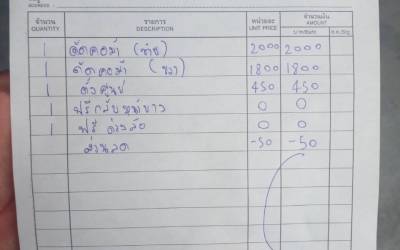 ADDRESS
จำนวน QUANTITY รายการ DESCRIPTION หน่วยละ UNIT PRICE จำนวนเงิน AMOUNT
บาท/Baht ส.ต./Stg.
1 (ซ้าย) 2000 2000
1 (ขวา) 1800 1800
1 ตั้งศูนย์ 450 450
1 ฟรี 0 0
1 ฟรี 0 0
ส่วนลด -50 -50